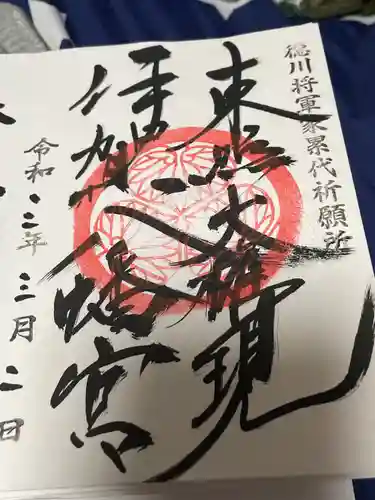 徳川将軍家累代祈願所
東照大権現
伊賀八幡宮
令和二年三月二日